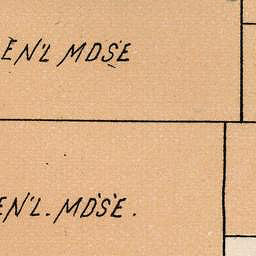 EN'L MDSE
EN'L. MD'S'E.